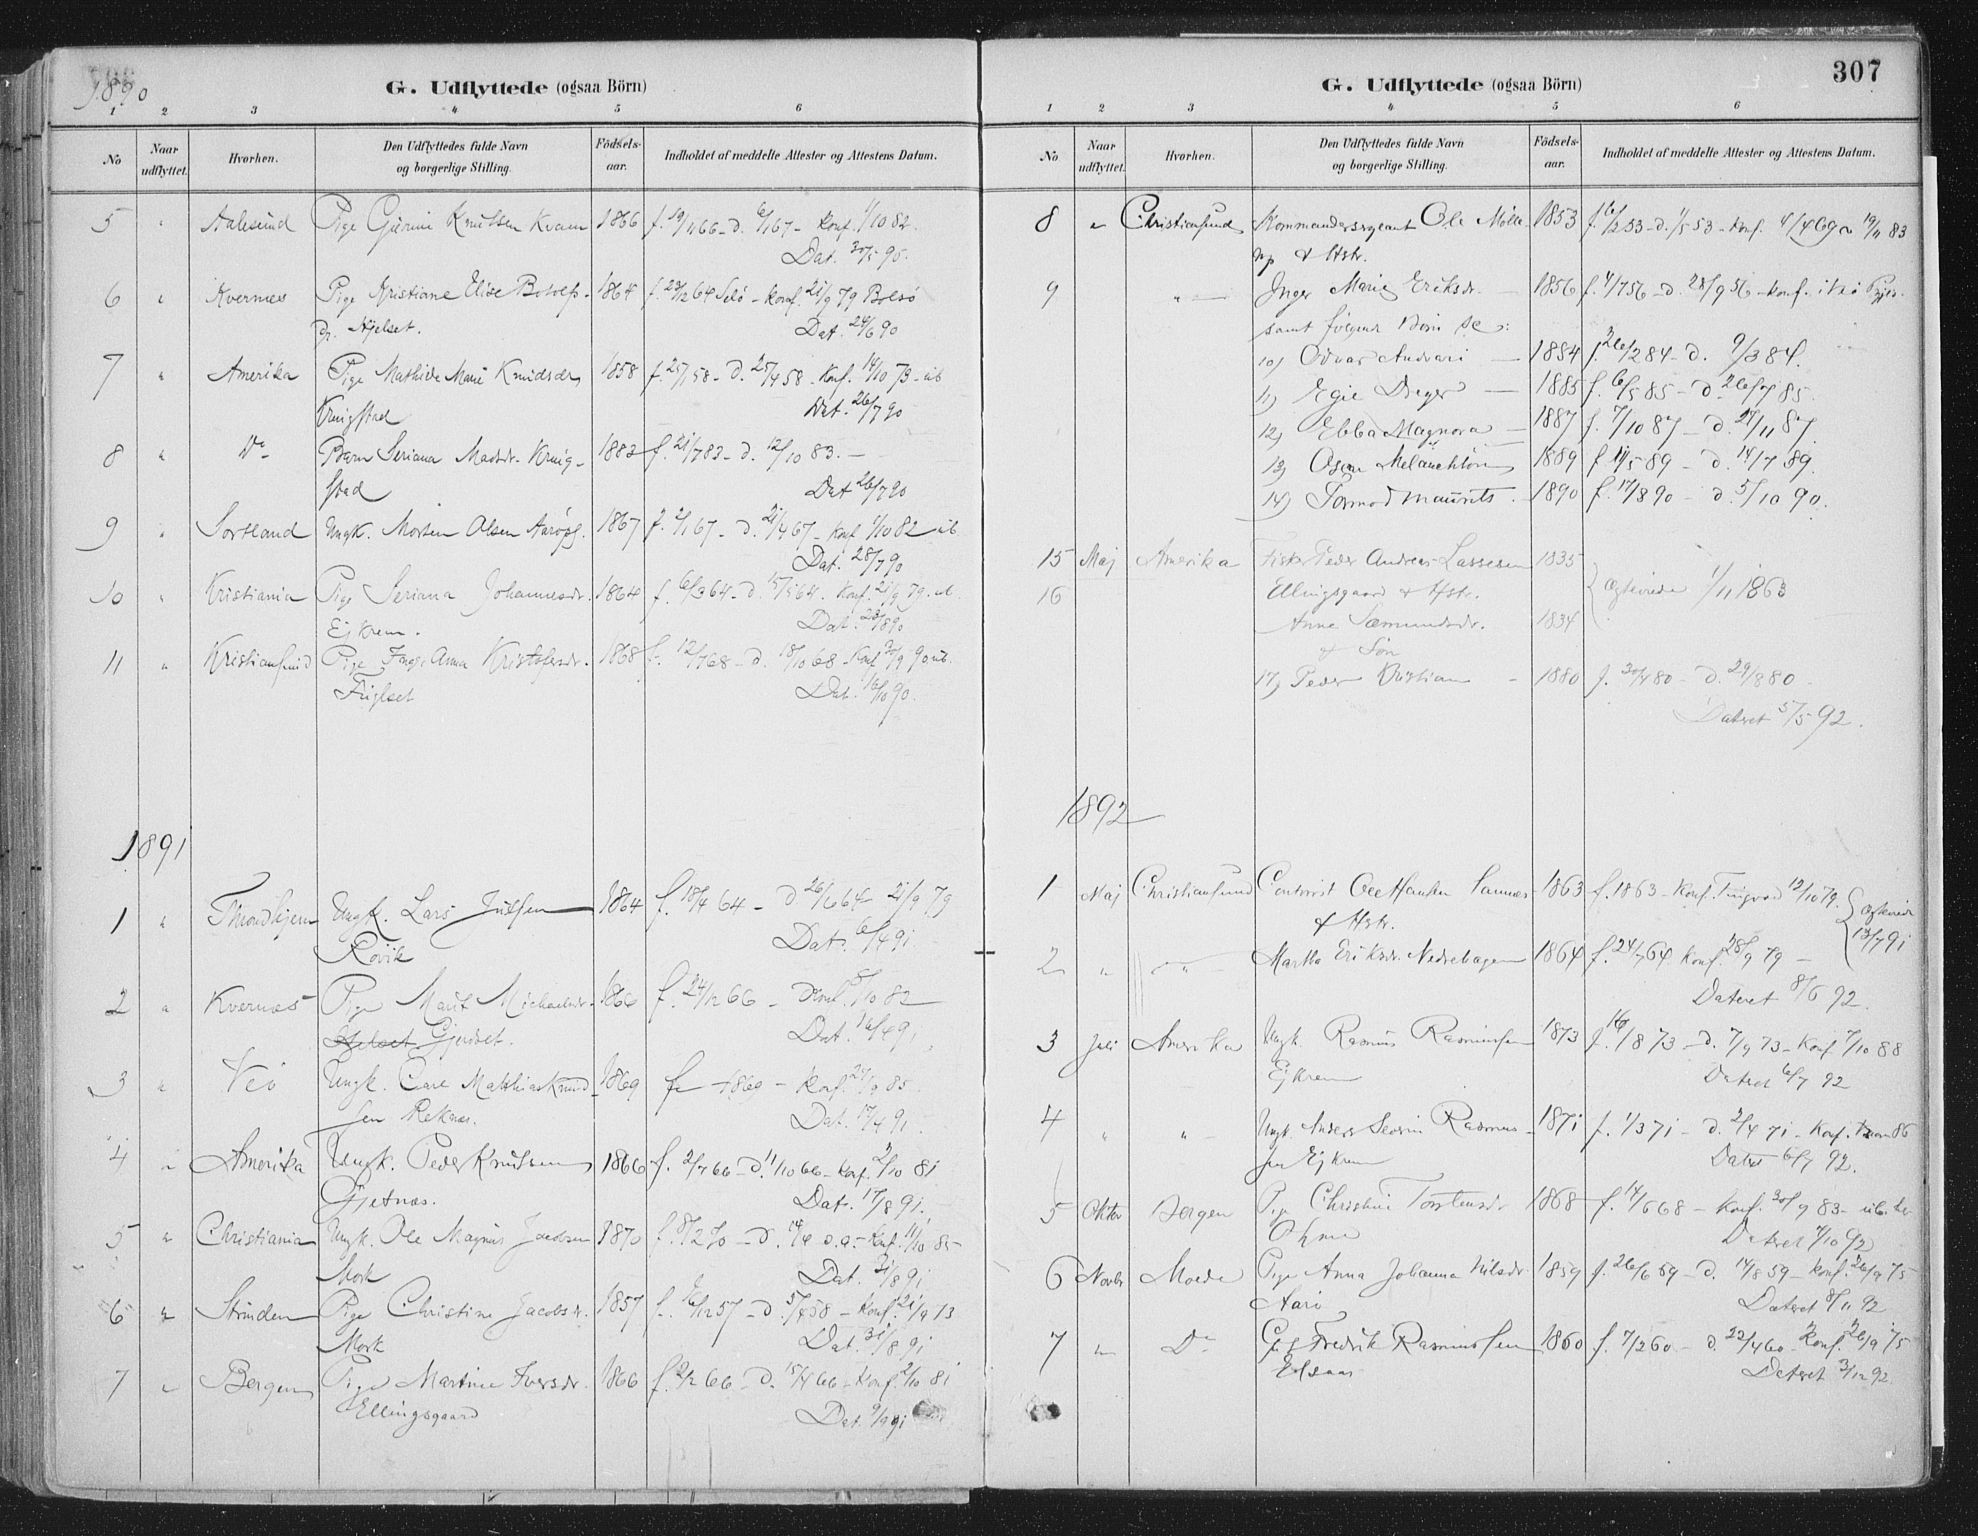 1890
G. Udflyttede (ogsaa Börn)
1 2 3 4 5 6
No
Naar udflyttet.
Hvorhen.
Den Udflyttedes fulde Navn og borgerlige Stilling.
Födsels-aar.
Indholdet af meddelte Attester og Attestens Datum.
5 " Aalesund Pige Knutsen Kvam 1866 f. 19/11 66 - d. 6/1 67 - Konf. 1/10 82.
Dat. 30/5 90.
6 " Kvernes Pige Kristiane Elise Botolfs- 1864 f. 23/12 64 - Konf. 21/9 79 Bolsö
dr. Hjelset. Dat. 24/6 90
7 " Amerika Pige Mathilde Marie Knudsdr 1858 f. 25/1 58 - d. 25/4 58 - Konf. 14/10 73 - ub
Kringstad Dat. 26/7 90
8 " Do Barn Seriana Madsdr. Kring- 1883 f. 21/7 83 - d. 12/10 83. -
stad Dat 26/7 90
9 " Sortland Ungk. Morten Olsen 1867 f. 2/1 67 - d. 21/4 67 - Konf. 1/10 82 ub
Dat. 28/7 90
10 " Kristiania Pige Seriana Johannesdr. 1864 f. 6/3 64 - d. 15/5 64. Konf. 21/9 79. ub.
Ejkrem. Dat. 28/8 90
11 " Kristiansund Pige Anna Kristofersdr. 1868 f. 12/7 68 - d. 18/10 68 - Konf 30/9 90 ub.
Fuglset Dat. 16/10 90.
1891
1 " Throndhjem Ungk. Lars Julsen 1864 f. 18/4 64 - d. 26/6 64 - 21/9 79
Røvik Dat. 6/4 91
2 " Kvernæs Pige Marit Michaelsdr. 1866 f. 24/12 66 - Konf. 1/10 82
Hjelset Gjerdset. Dat. 16/4 91
3 " Veö Ungk. Carl Matthias Knud- 1869 f. 1869 - Konf. 27/9 85
sen Reknæs. Dat. 17/4 91
4 " Amerika Ungk. Peder Knutsen 1866 f. 2/7 66 - d. 11/10 66 - Konf. 2/10 81
Gjetnæs. Dat. 17/8 91.
5 " Christiania Ungk. Ole Magnus Jacobsen 1870 f. 8/2 70 - d. 14/4 s.a. - Konf. 11/10 85 -
Mork Dat. 31/8 91
6 " Strinden Pige Christine Jacobsdr. 1857 f. 16/12 57 - d. 5/4 58 - Konf. 21/9 73
Mork Dat. 31/8 91
7 " Bergen Pige Martine Iversdr. 1866 f. 2/2 66 - d. 15/4 66 - Konf. 2/10 81
Ellingsgaard Dat. 9/9 91
307
G. Udflyttede (ogsaa Börn)
1 2 3 4 5 6
No
Naar udflyttet.
Hvorhen.
Den Udflyttedes fulde Navn og borgerlige Stilling.
Födsels-aar.
Indholdet af meddelte Attester og Attestens Datum.
8 " Christiansund Kommandersergeant Ole 1853 f. 6/2 53 - d. 1/5 53 - Konf. 4/4 69 19/11 83
& Hstr.
9 " Inger Marie Eriksdr. - 1856 f. 4/7 56 - d. 28/9 56 - Konf. i
samt følgende Børn
10) Odvar Andvari - 1884 f. 26/2 84 - d. 9/3 84.
11) Egil Dreyer - 1885 f. 6/5 85 - d. 26/7 85.
12) Ebba Magnora - 1887 f. 7/10 87 - d. 27/11 87.
13) Oscar Melanchton 1889 f. 11/5 89 - d. 14/7 89.
14) Tormod Maurits. 1890 f. 17/8 90 - d. 5/10 90.
15 Maj Amerika Fisker Peder Andreas Lassesen 1835
16 Ellingsgaard & Hstr. Ægteviede 1/11 1863
Anne Sæmundsdr. 1834
& Søn
17) Peder Kristian - 1880 f. 30/4 80 - d. 29/8 80 -
Dateret 5/5 92.
1892
1 Maj Christiansund Ole Hansen Sannes 1863 f. 1863 - Konf. Tingvold 12/10 79. Ægteviede
& Hstr. 13/7 91
2 " " Martha Eriksdr. Nedrehagen 1864 f. 24/7 64. Konf. 28/9 79 -
Dateret 8/6 92.
3 Juli Amerika Ungk. Rasmus Rasmussen 1873 f. 16/8 73 - d. 7/9 73 - Konf 7/10 88
Ejkrem Dateret 6/7 92
4 " " Ungk. Anders Severin Rasmus- 1871 f. 1/3 71 - d. 2/4 71 - Konf. 86
sen Ejkrem Datret 6/7 92.
5 Oktbr Bergen Pige Christine Torstensdr 1868 f. 14/6 68 - Konf. 30/9 83 -
Dateret 7/10 92
6 Novbr Molde Pige Anna Johanna Nilsdr. 1859 f. 26/6 59 - d. 14/8 59 - Konf. 26/9 75
Aarö Dateret 8/11 92
7 " Do Fredrik Rasmussen 1860 f. 7/2 60 - d. 22/4 60 - Konf. 26/9 75
Elsaas Dateret 3/12 92.